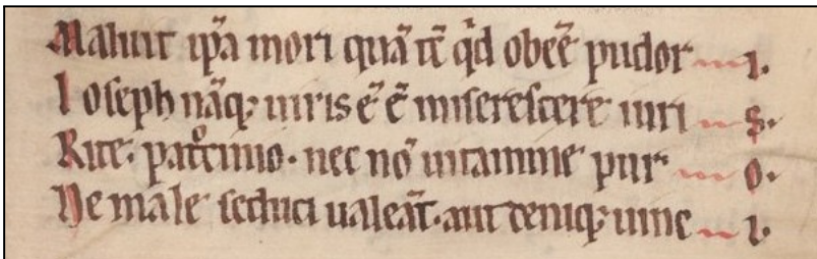 Maluit ip̃a mori quã tc̃ qd̾ obeẽ pudor i.
Ioseph nãq; iuris ẽ c̃ miserescere iuri s.
Rite. pat͛rimo. nec nõ uitamine pur o.
Ne male seduci ualeãt. aut deniq; uinc i.